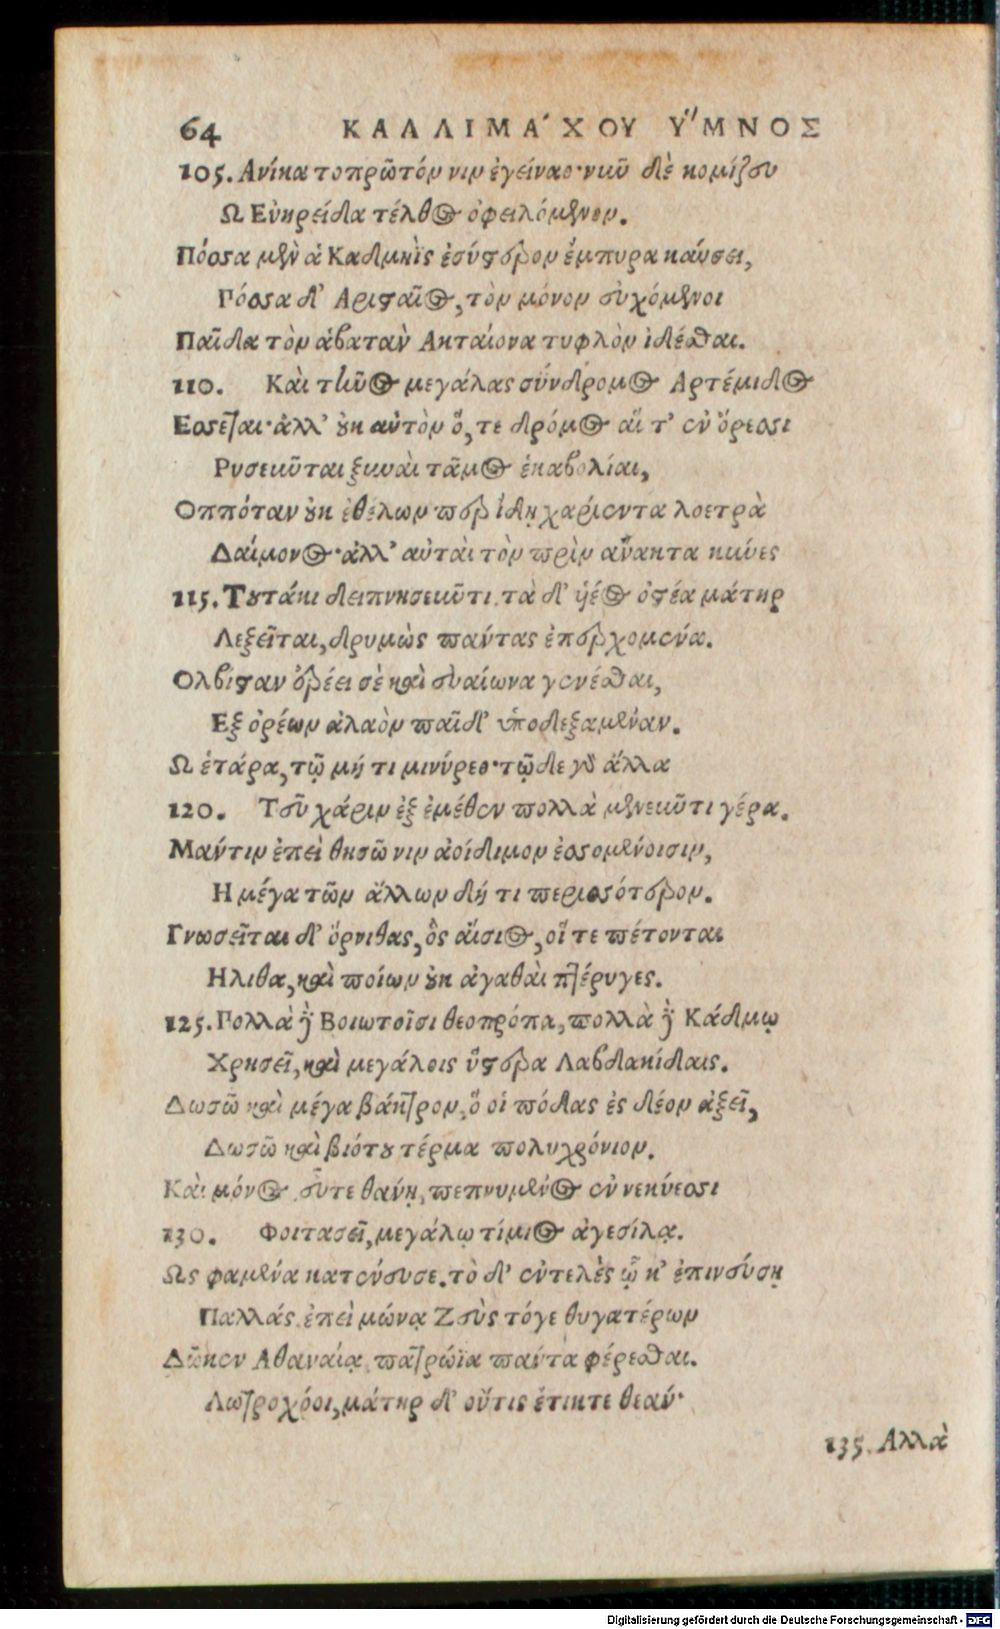 64 ΚΑΛΛΙΜΑ΄ΧΟΥ Υ῞ΜΝΟΣ
105. Ανίκα τοπρῶτόν νιν ἐγείναο· νιῦ δὲ κομίζευ
Ω Εὐηρείδα τέλθος ὀφειλόμενον.
Πόσσα μὲν ἁ Καδμηῒς ἐσύστερον ἔμπυρα καύσει,
Πόσσα δ' Αρισταῖος, τὸν μόνον εὐχόμενοι
Παῖδα τὸν ἁβατὰν Ακταίονα τυφλὸν ἰδέσθαι.
110. Καὶ τῆνος μεγάλας σύνδρομος Αρτέμιδος
Εσσεῖται· ἀλλ' οὐκ αὐτὸν ὅ, τε δρόμος αἵ τ' ἐν ὄρεσσι
Ρυσεῦνται ξυναὶ τᾶμος ἑκαβολίαι,
Οππόταν οὐκ ἐθέλων περ ἴδῃ χαρίεντα λοετρὰ
Δαίμονος· ἀλλ' αὐταὶ τὸν πρὶν ἄνακτα κύνες
115. Τουτάκι δειπνησεῦντι. τὰ δ' ὑέος ὀστέα μάτηρ
Λεξεῖται, δρυμὼς πάντας ἐπερχομένα.
Ολβίσταν ὀρέει σὲ καὶ εὐαίωνα γενέσθαι,
Εξ ὀρέων ἀλαὸν παῖδ' ὑποδεξαμέναν.
Ω ἑτάρα, τῷ μή τι μινύρεο· τῷδε γὰρ ἄλλα
120. Τεῦ χάριν ἐξ ἐμέθεν πολλὰ μενεῦντι γέρα.
Μάντιν ἐπεὶ θησῶ νιν ἀοίδιμον ἐσσομένοισιν,
Η μέγα τῶν ἄλλων δή τι περισσότερον.
Γνωσεῖται δ' ὄρνιθας, ὃς αἴσιος, οἵ τε πέτονται
Ηλιθα, καὶ ποίων οὐκ ἀγαθαὶ πτέρυγες.
125. Πολλὰ δὲ Βοιωτοῖσι θεοπρόπα, πολλὰ δὲ Κάδμῳ
Χρησεῖ, καὶ μεγάλοις ὕστερα Λαβδακίδαις.
Δωσῶ καὶ μέγα βάκτρον, ὅ οἱ πόδας ἐς δέον ἀξεῖ,
Δωσῶ καὶ βιότου τέρμα πολυχρόνιον.
Καὶ μόνος εὖτε θάνῃ, πεπνυμένος ἐν νεκύεσσι
130. Φοιτασεῖ, μεγάλῳ τίμιος ἀγεσίλᾳ.
Ως φαμένα κατένευσε. τὸ δ' ἐντελὲς ᾧ κ' ἐπινεύσῃ
Παλλάς. ἐπεὶ μώνᾳ Ζεὺς τόγε θυγατέρων
Δῶκεν Αθαναίᾳ πατρώϊα πάντα φέρεσθαι.
Λωτροχόοι, μάτηρ δ' οὔτις ἔτικτε θεάν·
135. Αλλὰ
Digitalisierung gefördert durch die Deutsche Forschungsgemeinschaft - DFG